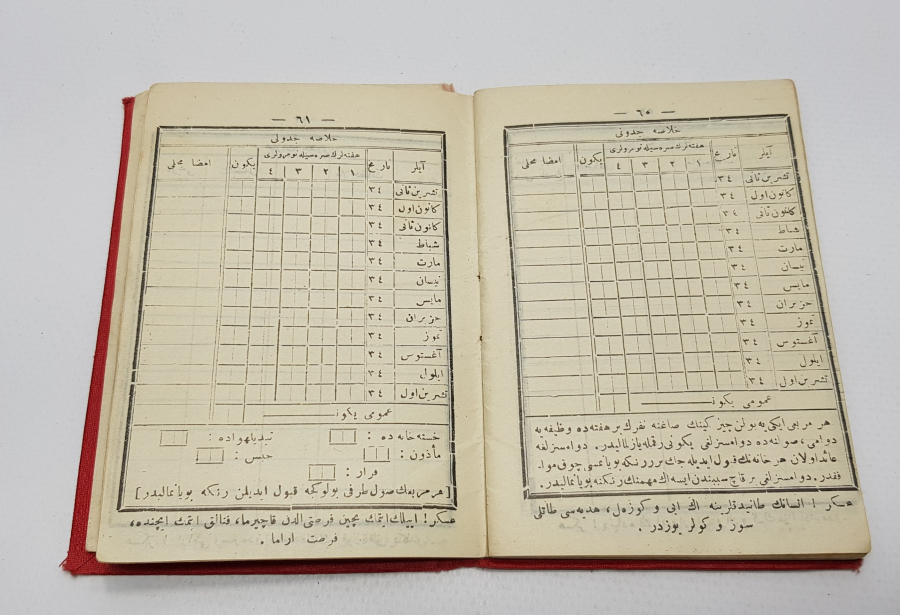 — ٦٠ —
خلاصه جدولی
آیلر تاریخ هفته لرك صره سیله نومرولری یکون امضا محلی
١ ٢ ٣ ٤
تشرین ثانی ٣٤
کانون اول ٣٤
کانون ثانی ٣٤
شباط ٣٤
مارت ٣٤
نیسان ٣٤
مایس ٣٤
حزیران ٣٤
تموز ٣٤
آغستوس ٣٤
ایلول ٣٤
تشرین اول ٣٤
عمومی یکون
هر مربعی ایکی یه بولن چیزکینك صاغنه نفرك بر هفته ده وظیفه یه
دوامی، صولنه ده دوامسزلغی یکونی رقمله یازلمالیدر. دوامسزلغه
عائد اولان هر خانه نك قبول ایدیله جك بر رنکه بویانمسی چوق موا-
فقدر. دوامسزلغی بر قاچ سببدن ایسه اك مهمنك رنکنه بویانمالیدر.
عسکر! انسانك طانیدقلرینه اك ایی و کوزه ل، هدیه سی طاتلی
سوز و کولر یوزدر.
— ٦١ —
خلاصه جدولی
آیلر تاریخ هفته لرك صره سیله نومرولری یکون امضا محلی
١ ٢ ٣ ٤
تشرین ثانی ٣٤
کانون اول ٣٤
کانون ثانی ٣٤
شباط ٣٤
مارت ٣٤
نیسان ٣٤
مایس ٣٤
حزیران ٣٤
تموز ٣٤
آغستوس ٣٤
ایلول ٣٤
تشرین اول ٣٤
عمومی یکون
خسته خانه ده : تبدیلهواده :
مأذون : حبس :
فرار :
[هر مربعك صول طرفی بولوکجه قبول ایدیلن رنکه بویانمالیدر]
عسکر! اییلك ایتمك ایچین فرصتی الدن قاچیرما، فنالق ایتمك ایچنده،
فرصت آراما.